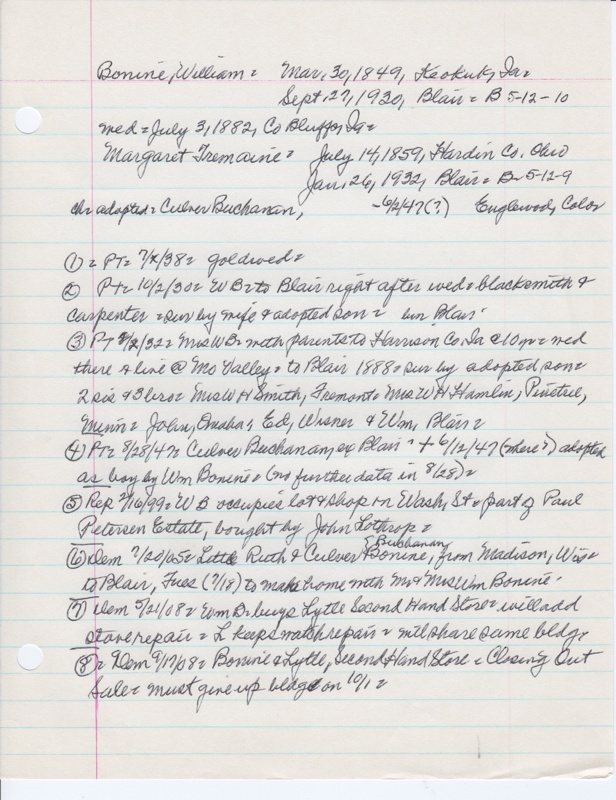 Bonine, William = Mar. 30, 1849, Keokuk, Ia =
Sept. 27, 1930, Blair = B 5-12-10
med = July 3, 1882, Co Bluffs, Ia =
Margaret Tremaine = July 14, 1859, Hardin Co. Ohio
Jan. 26, 1932, Blair = B 5-12-9
ch = adopted = Culver Buchanan, -6/2/47(?) Englewood, Color
① = PT = 7/ /38 = goldwed =
② PT = 10/2/30 = W B = to Blair right after wed = blacksmith &
carpenter = sur by wife & adopted son = bur Blair
③ PT 2/ /32 = Mrs W B = with parents to Harrison Co. Ia @ 10 yr = wed
there & live @ Mo Valley = to Blair 1888 = sur by adopted son =
2 sis & 3 bro = Mrs W H Smith, Fremont = Mrs W H Hamlin, Pinetree,
Minn = John, Omaha, Ed, Wisner & Wm, Blair =
④ PT = 8/28/47 = Culver Buchanan, ex Blair + 6/12/47 (where?) adopted
as boy by Wm Bonine = (no further data in 8/28) =
⑤ Rep 2/16/99 = W B occupies lot & shop on Wash. St = part of Paul
Petersen Estate, bought by John Lothrop =
⑥ Dem 7/20/05 = Little Ruth & Culver Buchanan Bonine, from Madison, Wis =
to Blair, Tues (7/18) to make home with Mr & Mrs Wm Bonine.
⑦ Dem 5/21/08 = Wm B = buys Lytle Second Hand Store = will add
stove repair = L keeps watch repair = will share same bldg.
⑧ = Dem 9/17/08 = Bonine & Lytle, Second Hand Store = Closing Out
Sale = must give up bldg on 10/1 =